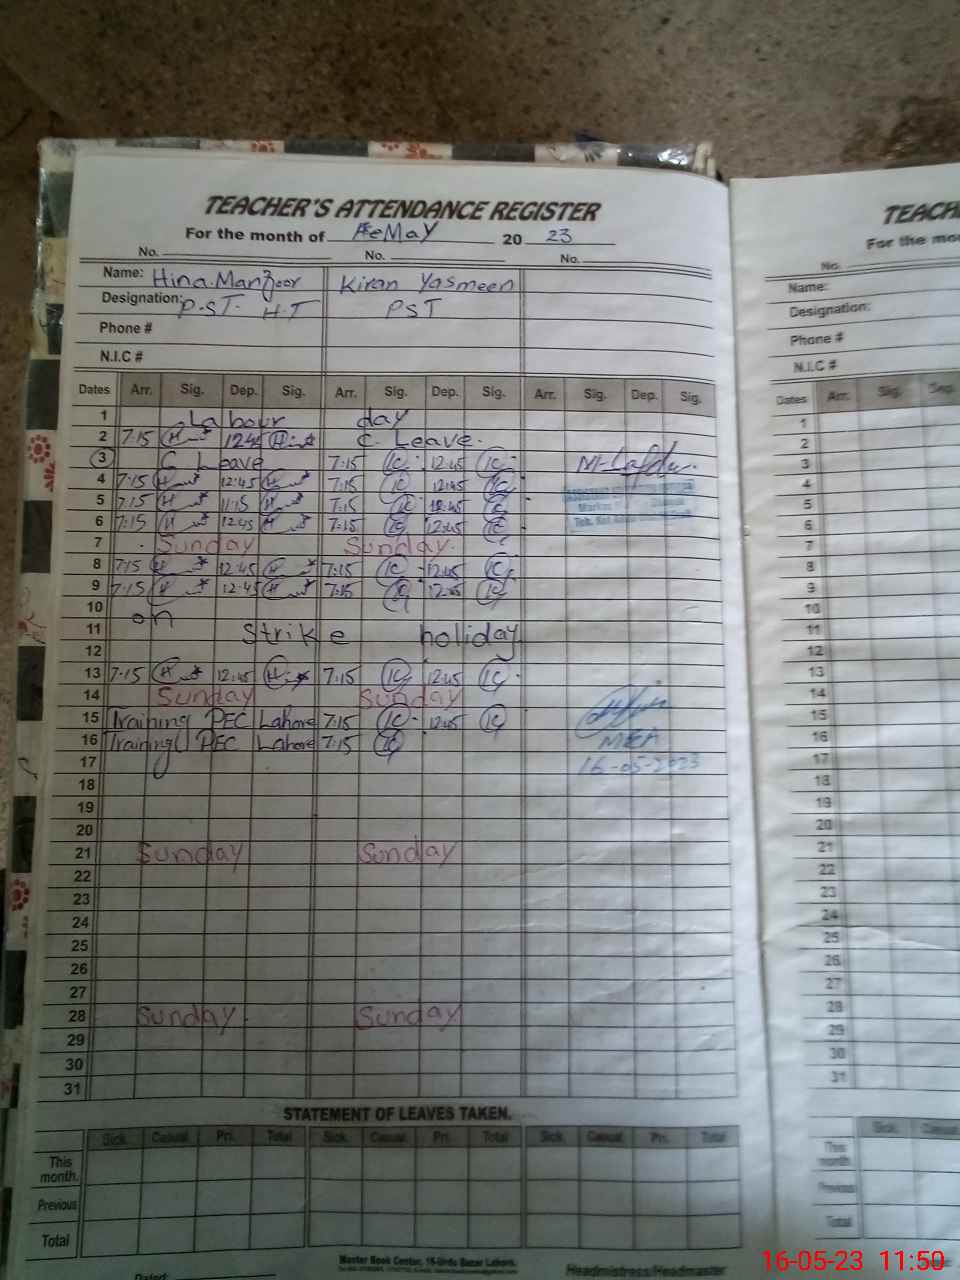 TEACHER'S ATTENDANCE REGISTER
For the month of May 2023
No. No. No.
Name: Hina Manzoor Kiran Yasmeen
Designation: P.S.T. H.T PST
Phone #
N.I.C #
Dates Arr. Sig. Dep. Sig. Arr. Sig. Dep. Sig. Arr. Sig. Dep. Sig.
1 Labour day
2 7:15 H 12:45 H C. Leave.
3 C Leave 7:15 12:45
4 7:15 H 12:45 H 7:15 12:45
5 7:15 H 11:15 H 7:15 12:45
6 7:15 H 12:45 H 7:15 12:45
7 Sunday Sunday
8 7:15 H 12:45 H 7:15 12:45
9 7:15 H 12:45 H 7:15 12:45
10 on
11 Strike holiday
12
13 7:15 H 12:45 H 7:15 12:45
14 Sunday Sunday
15 Training PEC Lahore 7:15 12:45
16 Training PEC Lahore 7:15
MEA
17 16-05-2023
18
19
20
21 Sunday Sunday
22
23
24
25
26
27
28 Sunday Sunday
29
30
31
STATEMENT OF LEAVES TAKEN.
Sick. Casual. Pri. Total Sick. Casual. Pri. Total Sick. Casual. Pri. Total
This month.
Previous
Total
Master Book Center, 16-Urdu Bazar Lahore.
Dated: Headmistress/Headmaster
TEACH
For the mo
No.
Name:
Designation:
Phone #
N.I.C #
Dates Arr. Sig. Dep.
1
2
3
4
5
6
7
8
9
10
11
12
13
14
15
16
17
18
19
20
21
22
23
24
25
26
27
28
29
30
31
Sick. Casual
This month
Previous
Total
16-05-23 11:50